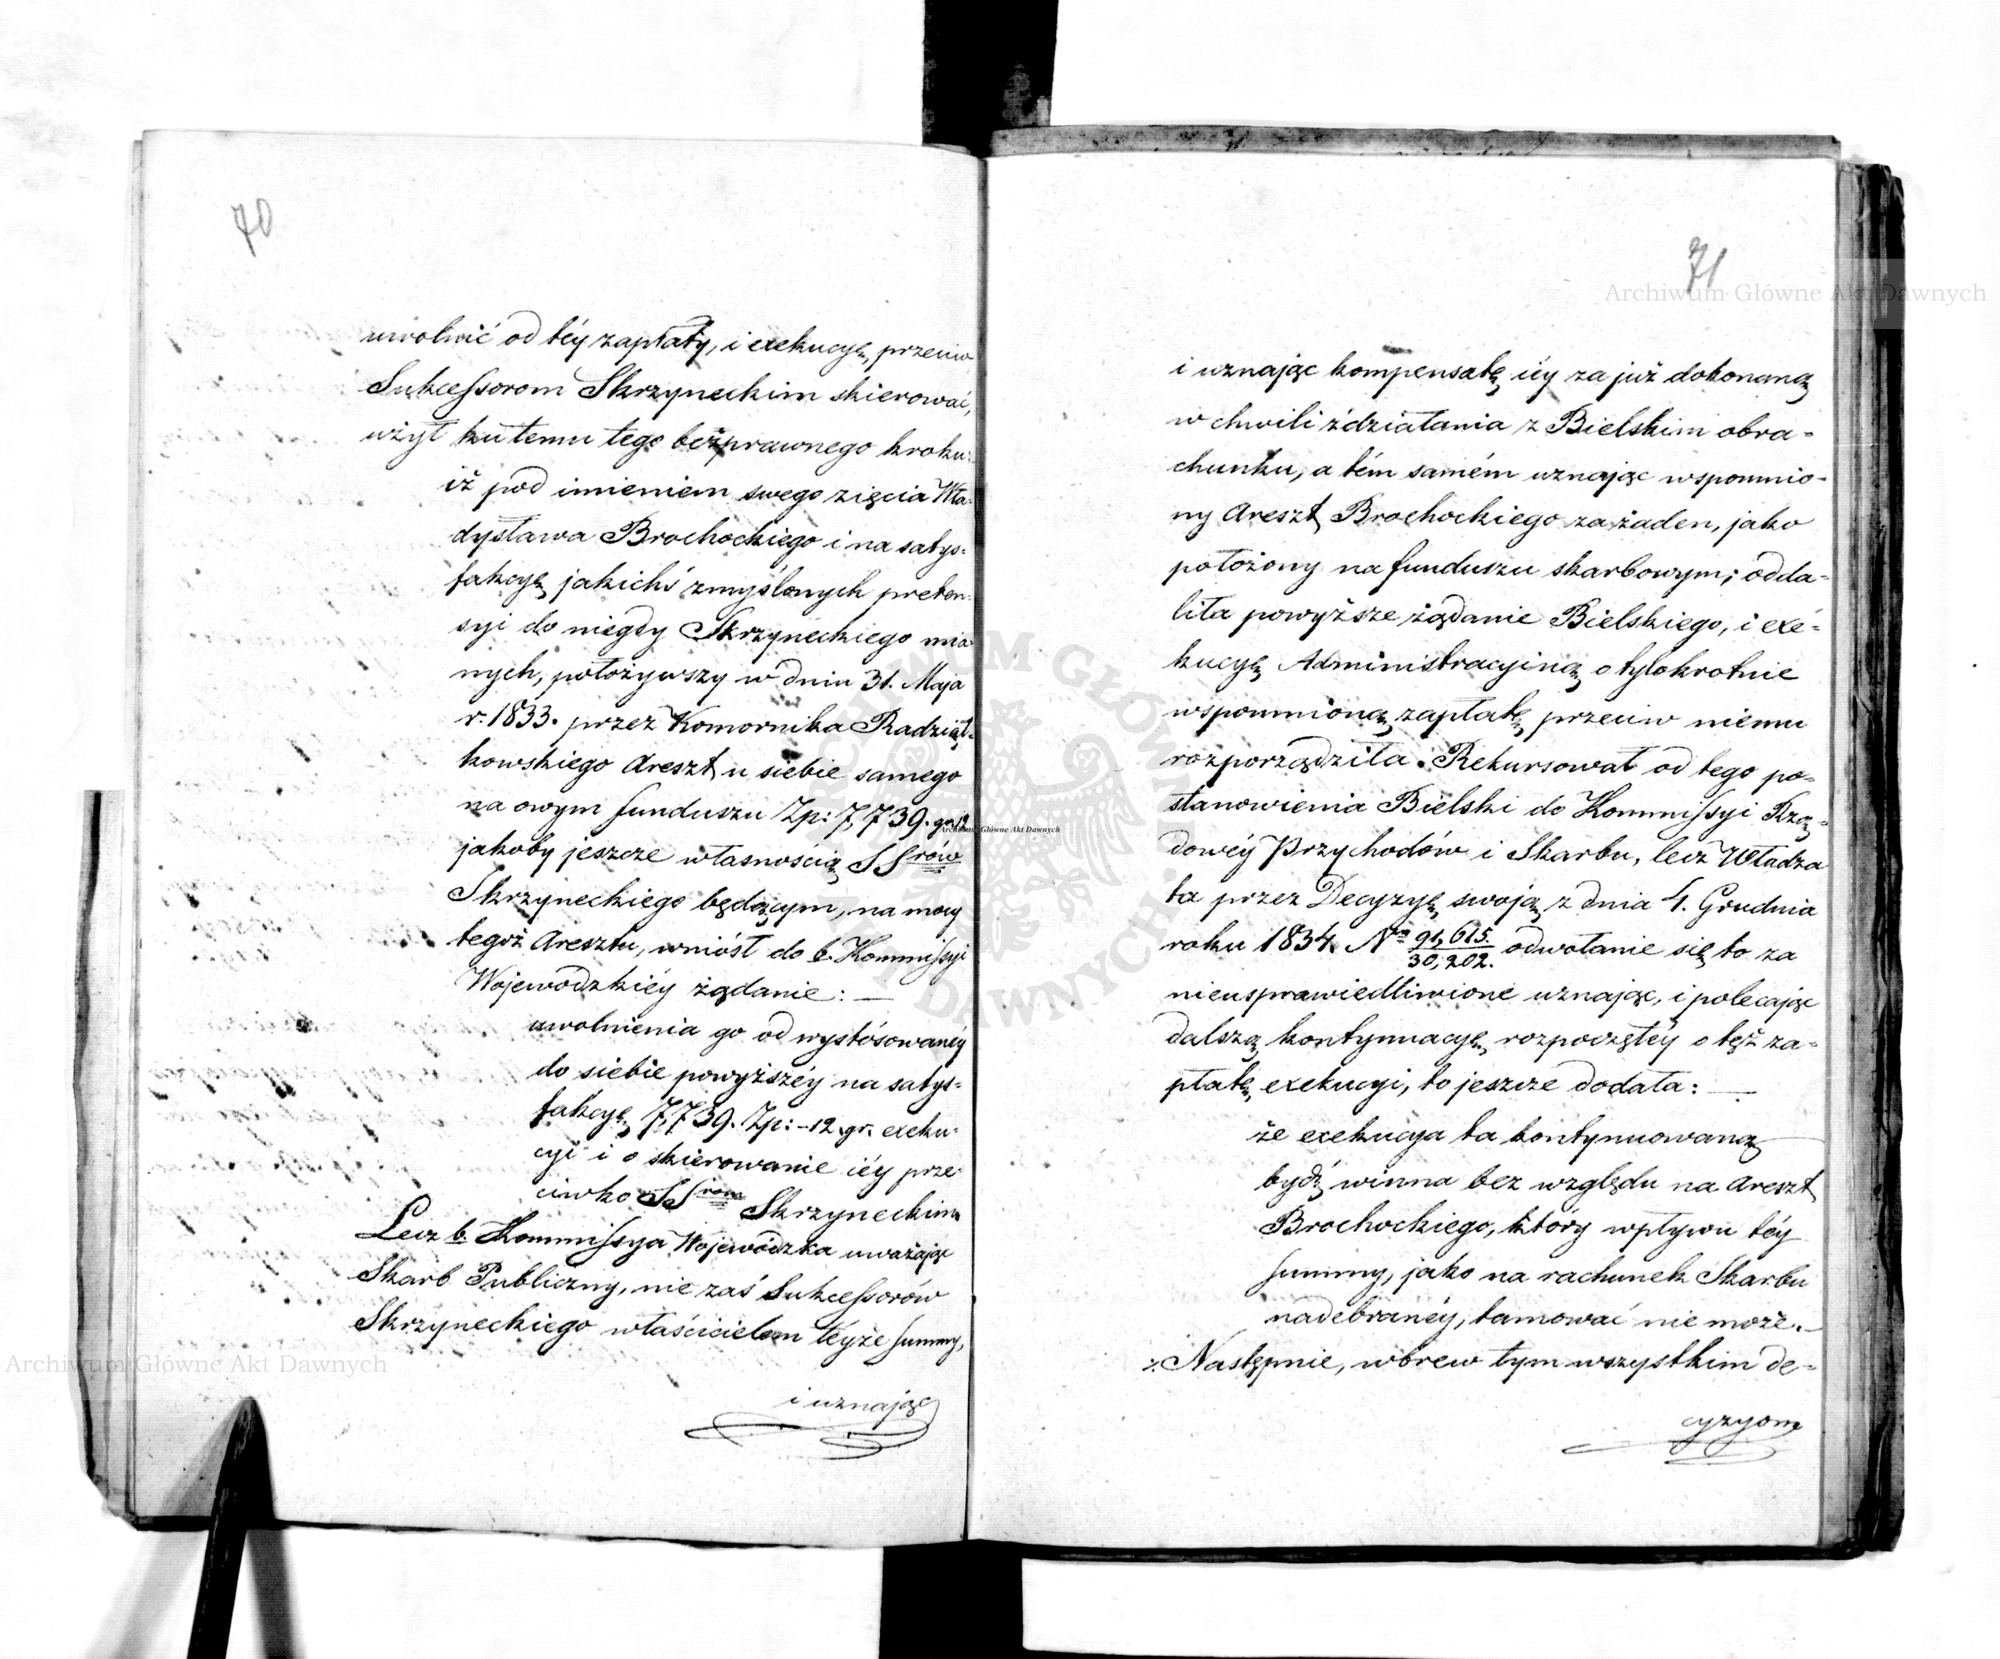 70
uwolnić od téy zapłaty, i exekucyę, przeciw
Sukcessorom Skrzyneckim skierować,
użył ku temu tego bezprawnego kroku:
iż pod imieniem swego zięcia Wła-
dysława Brochockiego i na satys-
fakcyę jakichś zmyślonych preten-
syi do niegdy Skrzyneckiego mia-
nych, położywszy w dniu 31. Maja
r. 1833. przez Komornika Radziąt-
kowskiego Areszt u siebie samego
na owym funduszu Zp: 7,739. gr. 12
jakoby jeszcze własnością SSrów
Skrzyneckiego będącym, na mocy
tegoż Aresztu, wniósł do b. Kommissyi
Wojewodzkiéy żądanie: —
uwolnienia go od wystósowanéy
do siebie powyższéy na satys-
fakcyę 7,739. Zp: – 12. gr. exeku-
cyi i o skierowanie iéy prze-
ciwko SSrom Skrzyneckim
Lecz b. Kommissya Wojewodzka uważając
Skarb Publiczny, nie zaś Sukcessorów
Skrzyneckiego właścicielem téyże summy,
i uznając
71
i uznając kompensatę iéy za już dokonaną
w chwili zdziałania z Bielskim obra-
chunku, a tém samém uznając wspomnio-
ny Areszt Brochockiego za żaden, jako
położony na funduszu skarbowym; odda-
liła powyższe żądanie Bielskiego, i exe-
kucyę Administracyiną o tylokrotnie
wspomnioną zapłatę przeciw niemu
rozporządziła. Rekursował od tego po-
stanowienia Bielski do Kommissyi Rzą-
dowéy Przychodów i Skarbu, lecz Władza
ta przez Decyzyę swoją z dnia 4. Grudnia
roku 1834. Nm 91,615./30,202. odwołanie się to za
nieusprawiedliwione uznając, i polecając
dalszą kontynuacyę rozpoczętéy o tęż za-
płatę exekucyi, to jeszcze dodała: —
że exekucya ta kontynuowaną
bydź winna bez względu na Areszt
Brochockiego, który wpływu téy
summy, jako na rachunek Skarbu
nadebranéy, tamować nie może. —
Następnie, wbrew tym wszystkim de-
cyzyom
Archiwum Główne Akt Dawnych
Archiwum Główne Akt Dawnych
Archiwum Główne Akt Dawnych
ARCHIWUM GŁÓWNE AKT DAWNYCH